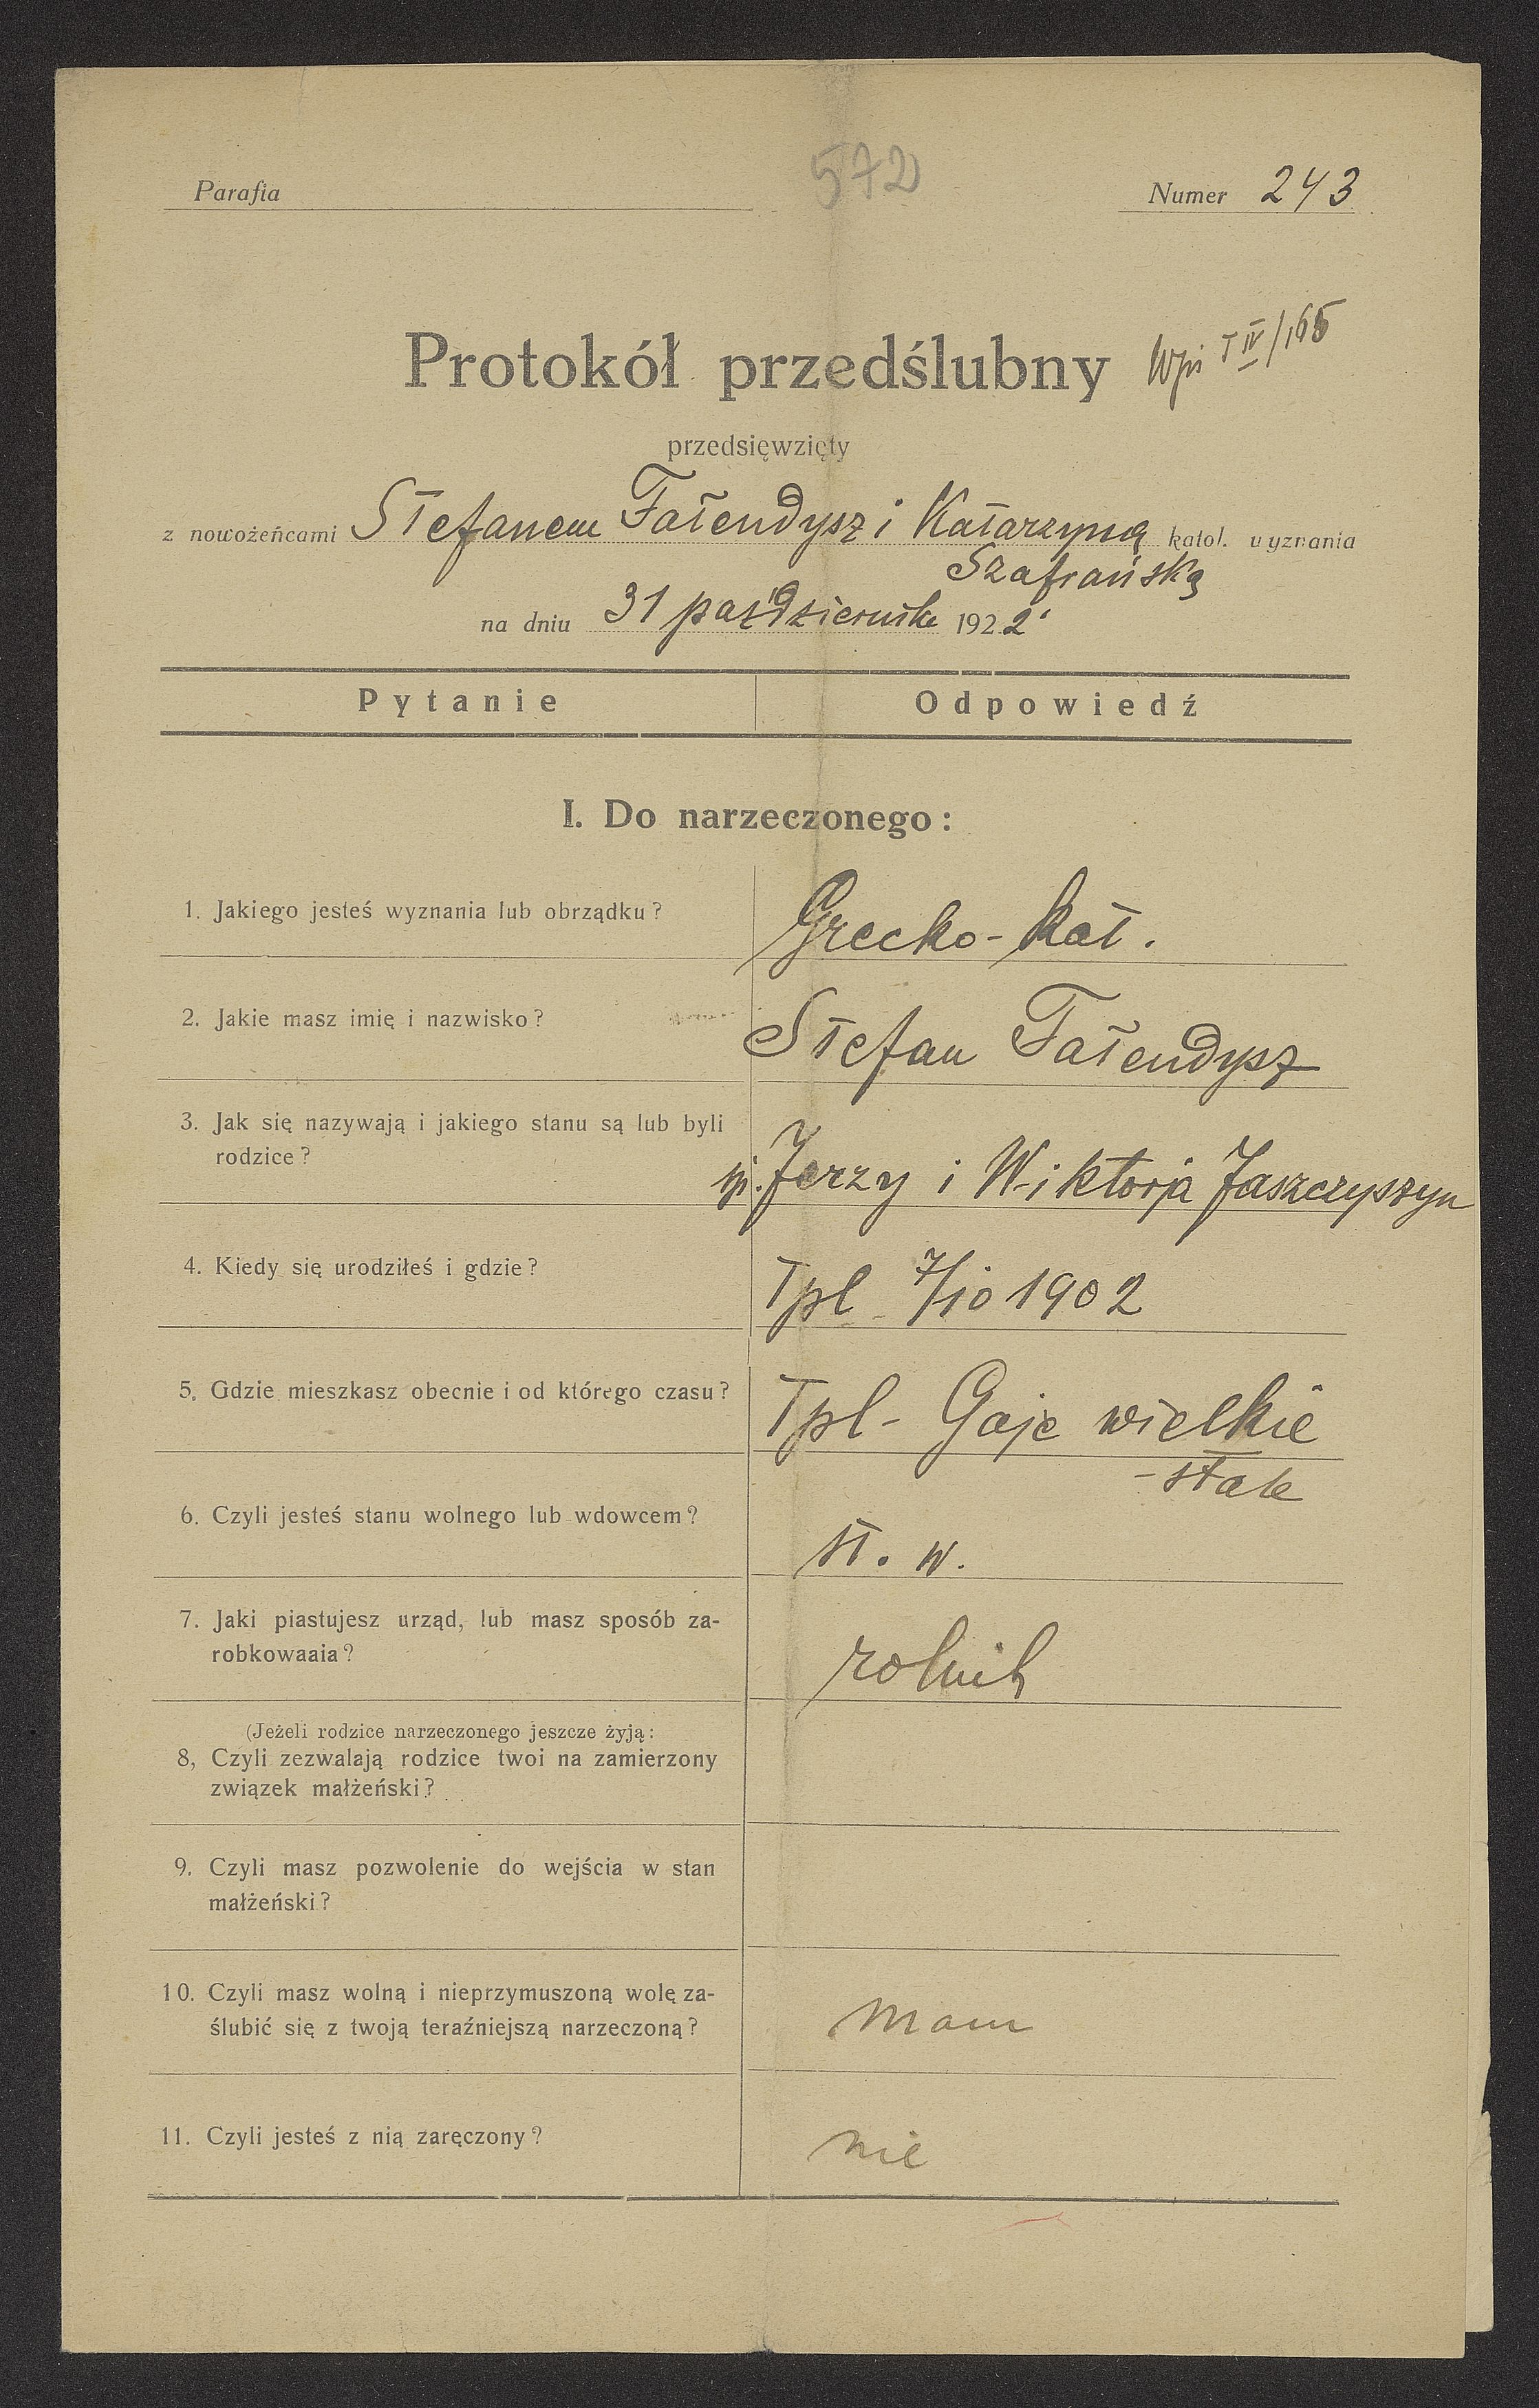 572
Parafia
Numer 243
Protokół przedślubny
Wpis T IV/165
przedsięwzięty
z nowożeńcami Stefanem Tatendysz i Katarzyną katol. wyznania
Szafrańską
na dniu 31 października 1922
Pytanie Odpowiedź
I. Do narzeczonego:
1. Jakiego jesteś wyznania lub obrządku? Grecko-kat.
2. Jakie masz imię i nazwisko? Stefan Tatendysz
3. Jak się nazywają i jakiego stanu są lub byli
rodzice?
Jerzy i Wiktorja Jaszczyszyn
4. Kiedy się urodziłeś i gdzie? Tpl 7/10 1902
5. Gdzie mieszkasz obecnie i od którego czasu? Tpl- Gaje wielkie
- stale
6. Czyli jesteś stanu wolnego lub wdowcem? st. w.
7. Jaki piastujesz urząd, lub masz sposób za-
robkowaaia? rolnik
(Jeżeli rodzice narzeczonego jeszcze żyją:
8, Czyli zezwalają rodzice twoi na zamierzony
związek małżeński?
9. Czyli masz pozwolenie do wejścia w stan
małżeński?
10. Czyli masz wolną i nieprzymuszoną wolę za-
ślubić się z twoją teraźniejszą narzeczoną? mam
11. Czyli jesteś z nią zaręczony? nie